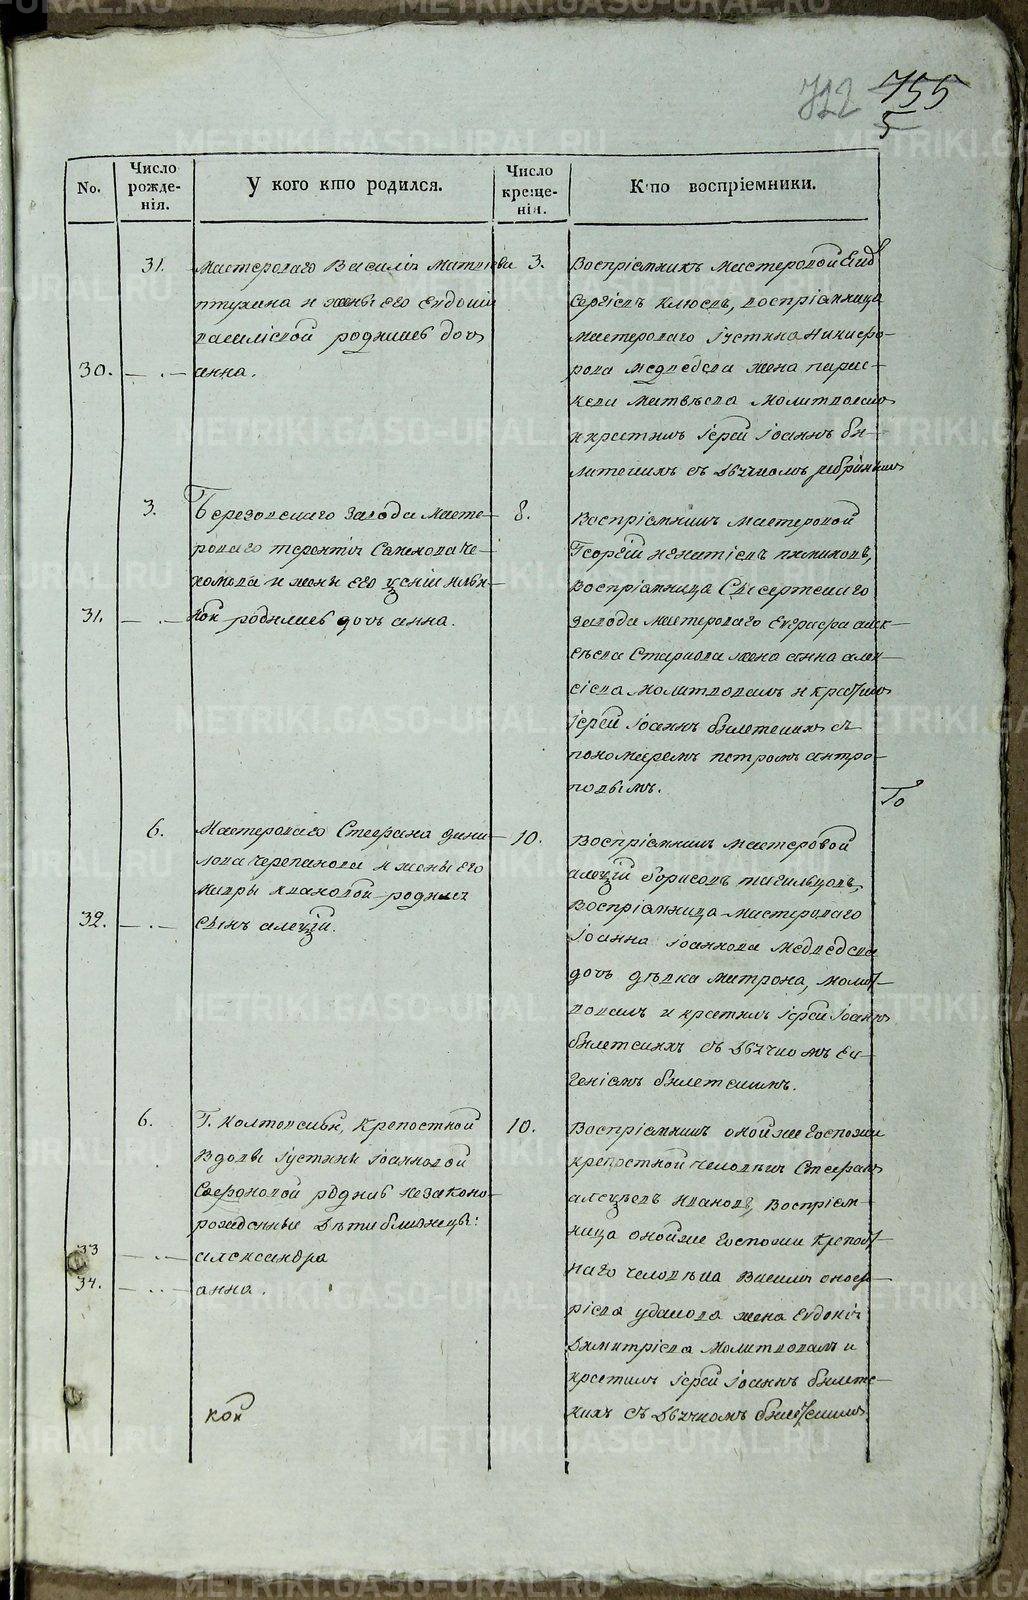 722 755
5
No.
Число рожде-нія.
У кого кто родился.
Число креще-нія.
Кто воспріемники.
31.
Мастероваго Василія Матвѣева
птухина и жены его Евдокіи
василіевой родилась дочь
30. анна.
3.
Воспріемникъ мастеровой
Сергіевъ Клюевъ, воспріемница
мастероваго Іустина Никифо-
рова медведева жена парас-
кева Матвѣева молитвовалъ
и крестилъ Іерей Іоаннъ би-
литскихъ съ дьячкомъ
3.
Березовскаго завода масте-
роваго терентія Семенова че-
и жены его
31. родилась дочь анна.
8.
Воспріемникъ мастеровой
Георгій игнатіевъ пиминовъ,
воспріемница Сысертскаго
завода мастероваго Евграфа алек-
сѣева Старцова жена анна алек-
сіева молитвовалъ и крестилъ
Іерей Іоаннъ билетскихъ съ
пономаремъ петромъ антро-
повымъ.
То
6.
Мастероваго Стефана дани-
лова черепанова и жены его
ивановой родился
32. сынъ алексій.
10.
Воспріемникъ мастеровой
алексій борисовъ тагильцовъ,
воспріемница мастероваго
Іоанна Іоаннова медведева
дочь дѣвка матрона, молит-
вовалъ и крестилъ Іерей Іоаннъ
билетскихъ съ дьячкомъ ев-
геніемъ билетскимъ.
6.
Г. Колтовской, крепостной
вдовы Іустины Іоанновой
Сафоновой родились незаконо-
рожденные дѣти близнецы:
33 александра
34. анна.
кой
10.
Воспріемникъ оной же госпожи
крепостной человѣкъ Стефанъ
алексѣевъ ивановъ, воспріем-
ница оной же госпожи крепост-
наго человѣка Василія оноф-
ріева удалова жена Евдокія
Димитріева молитвовалъ и
крестилъ Іерей Іоаннъ билетс-
кихъ съ дьячкомъ билетскимъ
METRIKI.GASO-URAL.RU